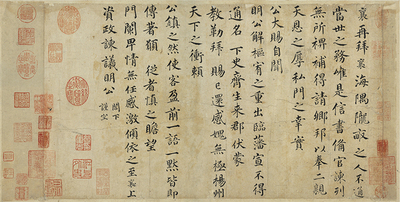 襄再拜襄海隅隴畝之人不通
當世之務唯是信書備官諫列
無所裨補得請鄉邦以奉二親
天恩之厚私門之幸實
公大賜自聞
明公解樞宥之重出臨藩宣不得
通名下史齊生來郡伏蒙
教勒拜賜已還感媿無極楊州
天下之衝賴
公鎮之然使客盈前一語一默皆即
傳著願從者慎之瞻望
門闌卑情無任感激傾依之至襄上
資政諫議明公 閤下
謹空